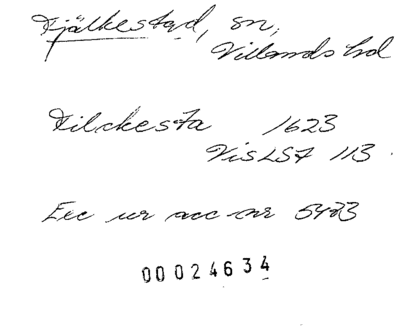 Fjälkestad, sn,
Villands hd
Filckesta 1623
VisLSF 113
Exc ur acc nr 5483
00024634